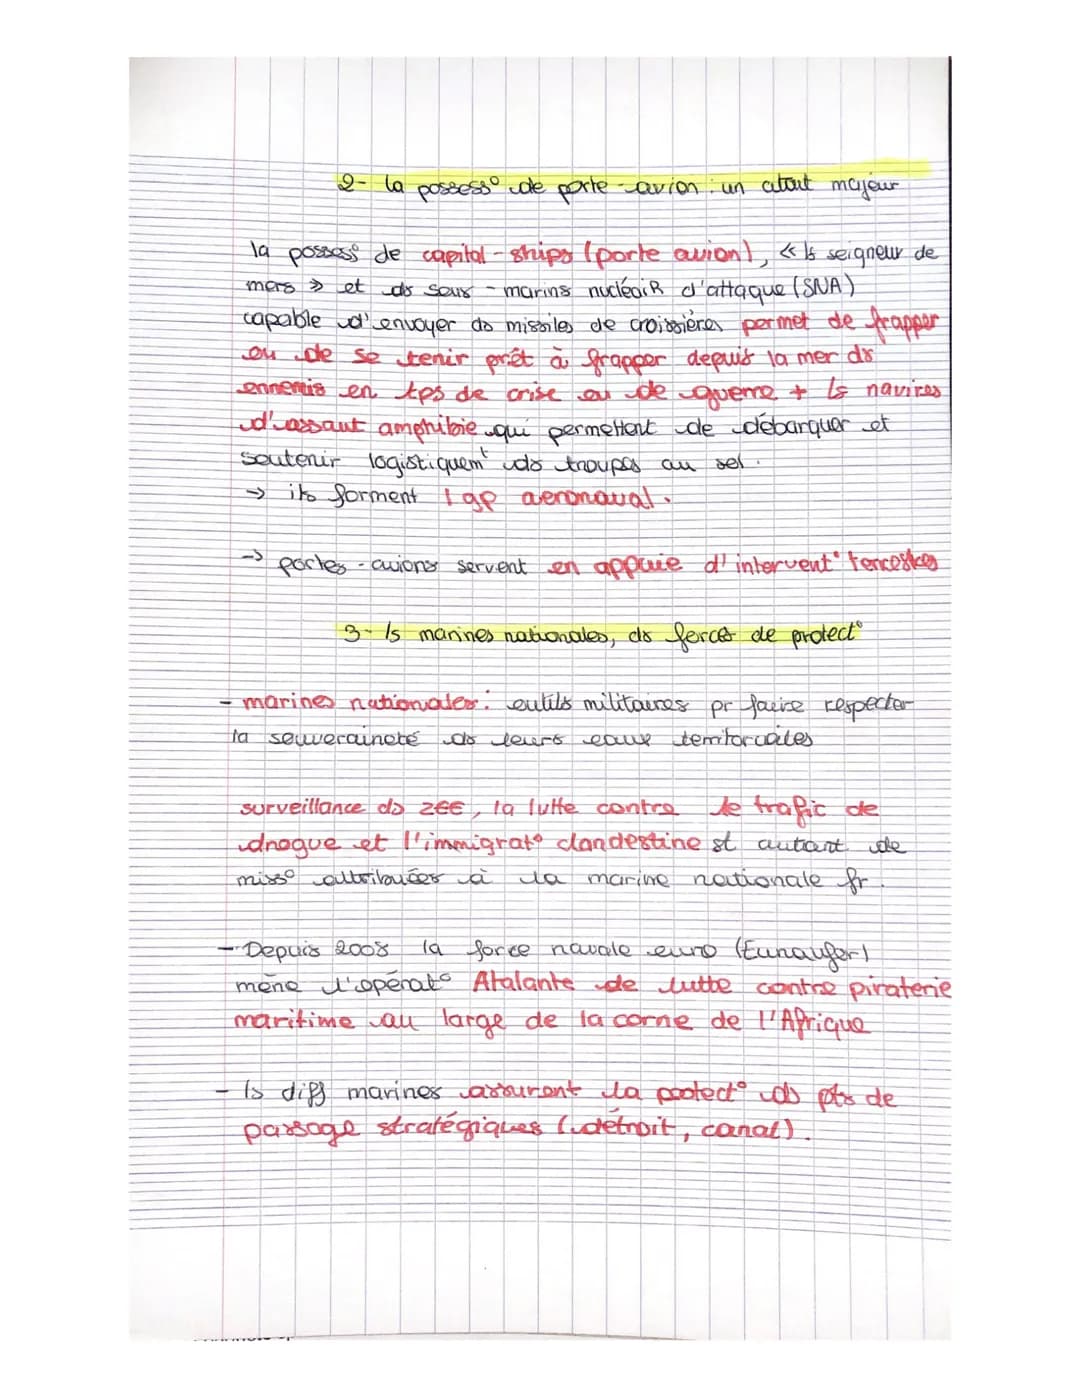 2- la possess° de porte-avion : un atout majeur
la possess° de capital-ships (porte avion), « ls seigneur de
mers » et ds sous-marins nucléaiR d'attaque (SNA)
capable d'envoyer ds missiles de croissières permet de frapper
ou de se tenir prêt à frapper depuis la mer ds
ennemis en tps de crise ou de guerre + ls navires
d'assaut amphibie qui permettent de débarquer et
soutenir logistiquemt ds troupes au sol.
→ ils forment 1 gp aeronaval.
→ portes-avions servent en appuie d'intervent° terrestres
3- ls marines nationales, ds forces de protect°
- marines nationales : outils militaires pr faire respecter
la souveraineté ds leurs eaux territoriales
surveillance ds ZEE, la lutte contre le trafic de
drogue et l'immigrat° clandestine st autant de
miss° attribuées à la marine nationale fr.
- Depuis 2008 la force navale euro (Eunavfor)
mène l'opérat° Atalante de lutte contre piraterie
maritime au large de la corne de l'Afrique
- ls diff marines assurent la protect° ds pts de
passage stratégiques (détroit, canal).